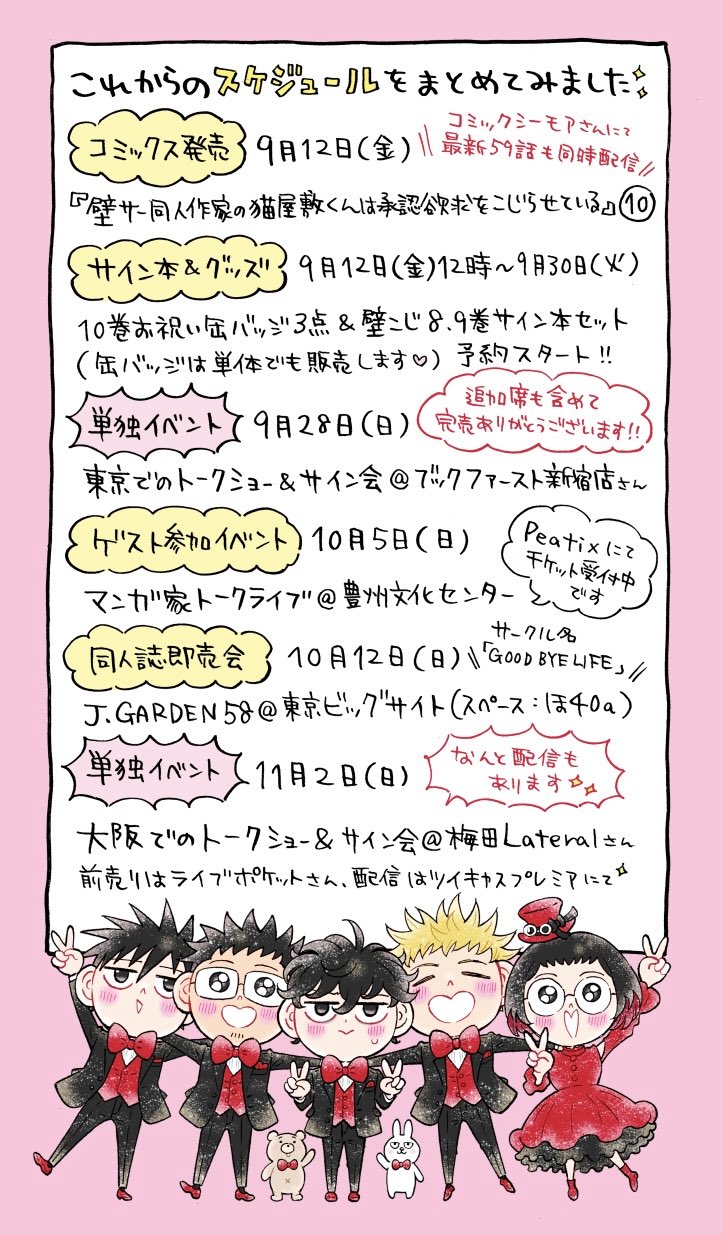 これからのスケジュールをまとめてみました
コミックス発売 9月12日(金) \\コミックシーモアさんにて
最新59話も同時配信//
『壁サー同人作家の猫屋敷くんは承認欲求をこじらせている』⑩
サイン本&グッズ 9月12日(金)12時~9月30日(火)
10巻お祝い缶バッジ3点&壁こじ8、9巻サイン本セット
(缶バッジは単体でも販売します♡) 予約スタート!!
単独イベント 9月28日(日) 追加席も含めて
完売ありがとうございます!!
東京でのトークショー&サイン会@ブックファースト新宿店さん
ゲスト参加イベント 10月5日(日) Peatixにて
チケット受付中
です
マンガ家トークライブ@豊州文化センター
同人誌即売会 10月12日(日) \\サークル名
「GOOD BYE LIFE」//
J.GARDEN58@東京ビッグサイト(スペース:ほ40a)
単独イベント 11月2日(日) なんと配信も
あります
大阪でのトークショー&サイン会@梅田Lateralさん
前売りはライブポケットさん、配信はツイキャスプレミアにて